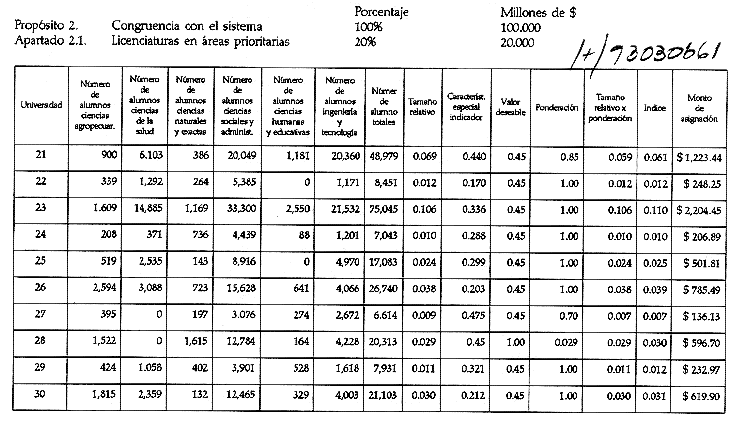 Porcentaje Millones de $
Propósito 2. Congruencia con el sistema 100% 100.000
Apartado 2.1. Licenciaturas en áreas prioritarias 20% 20.000
1+193030661
Universidad Número de alumnos ciencias agropecuar. Número de alumnos ciencias de la salud Número de alumnos ciencias naturales y exactas Número de alumnos ciencias sociales y administ. Número de alumnos ciencias humanas y educativas Número de alumnos ingeniería y tecnología Númer de alumno totales Tamaño relativo Característ. especial indicador Valor deseable Ponderación Tamaño relativo x ponderación Indice Monto de asignación
21 900 6.103 386 20,049 1,181 20,360 48,979 0.069 0.440 0.45 0.85 0.059 0.061 $ 1,223.44
22 339 1,292 264 5,385 0 1,171 8,451 0.012 0.170 0.45 1.00 0.012 0.012 $ 248.25
23 1.609 14,885 1,169 33,300 2,550 21,532 75,045 0.106 0.336 0.45 1.00 0.106 0.110 $ 2,204.45
24 208 371 736 4,439 88 1,201 7,043 0.010 0.288 0.45 1.00 0.010 0.010 $ 206.89
25 519 2,535 143 8,916 0 4,970 17,083 0.024 0.299 0.45 1.00 0.024 0.025 $ 501.81
26 2,594 3,088 723 15,628 641 4,066 26,740 0.038 0.203 0.45 1.00 0.038 0.039 $ 785.49
27 395 0 197 3.076 274 2,672 6.614 0.009 0.475 0.45 0.70 0.007 0.007 $ 136.13
28 1,522 0 1,615 12,784 164 4,228 20,313 0.029 0.45 1.00 0.029 0.029 0.030 $ 596.70
29 424 1.058 402 3,901 528 1,618 7,931 0.011 0.321 0.45 1.00 0.011 0.012 $ 232.97
30 1,815 2,359 132 12,465 329 4,003 21,103 0.030 0.212 0.45 1.00 0.030 0.031 $ 619.90